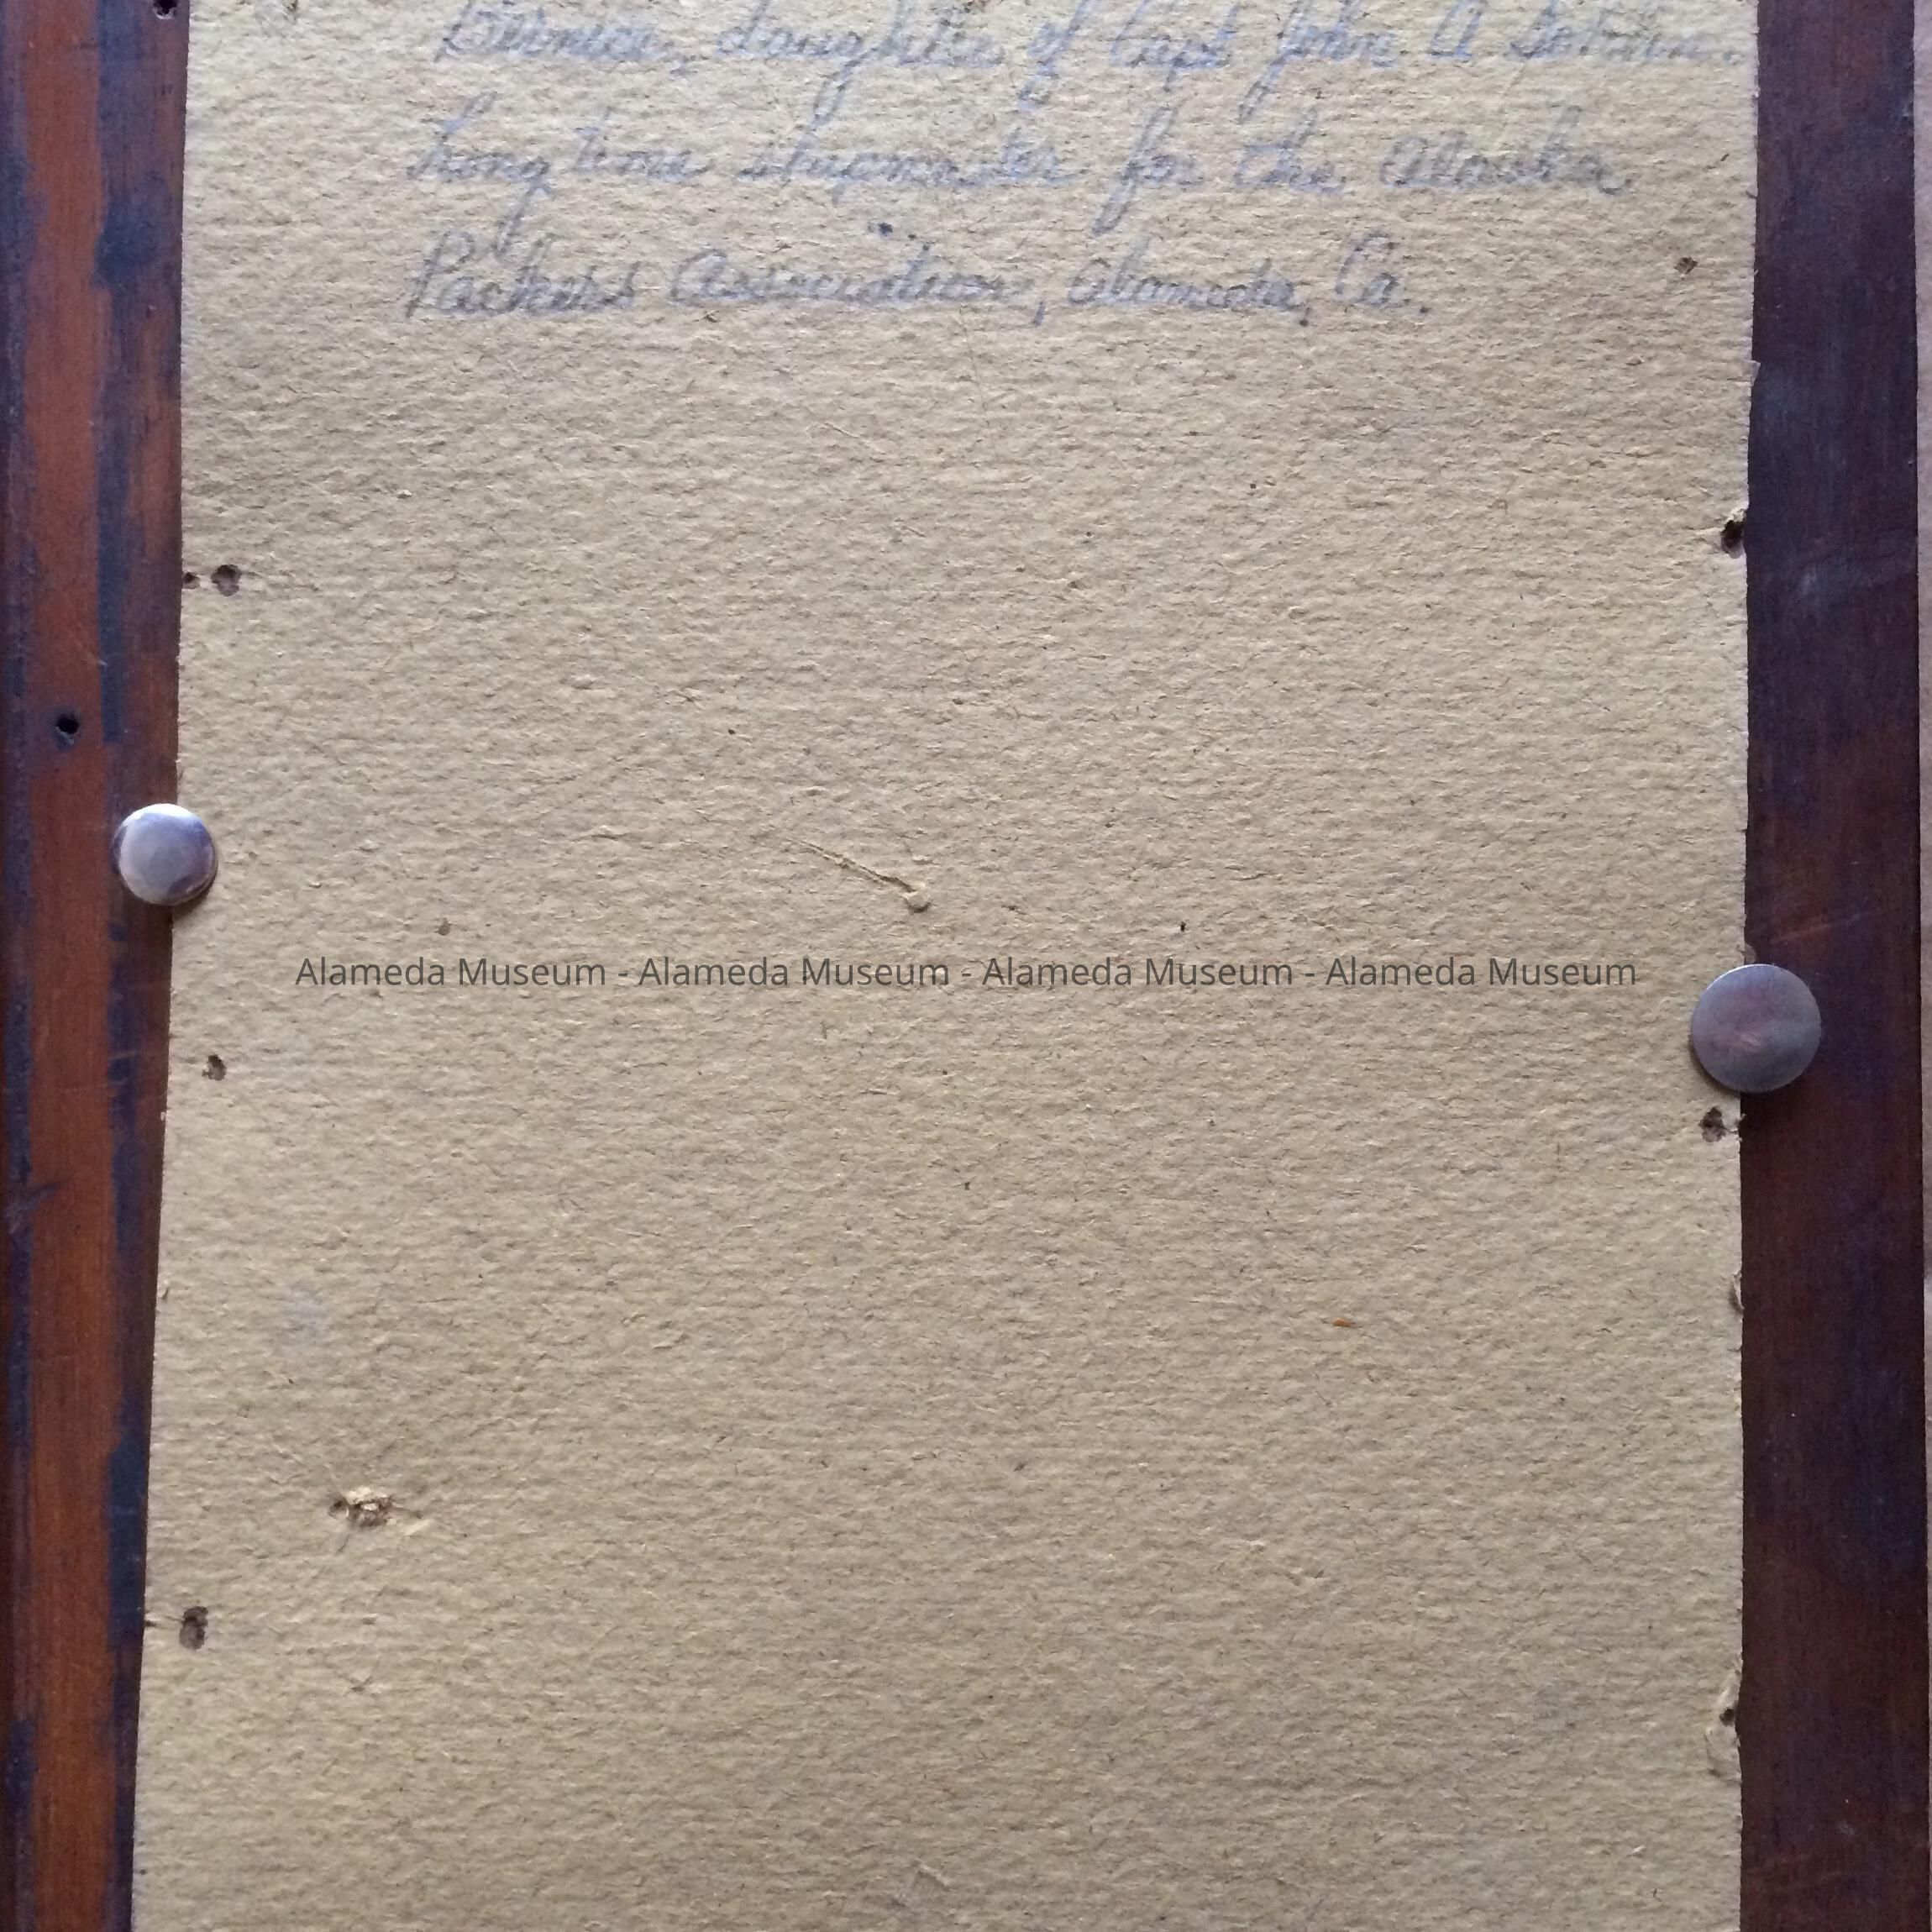 Bernice, daughter of Capt John A
Long time shipmaster for the Alaska
Packers Association, Alameda, Ca.
Alameda Museum - Alameda Museum - Alameda Museum - Alameda Museum